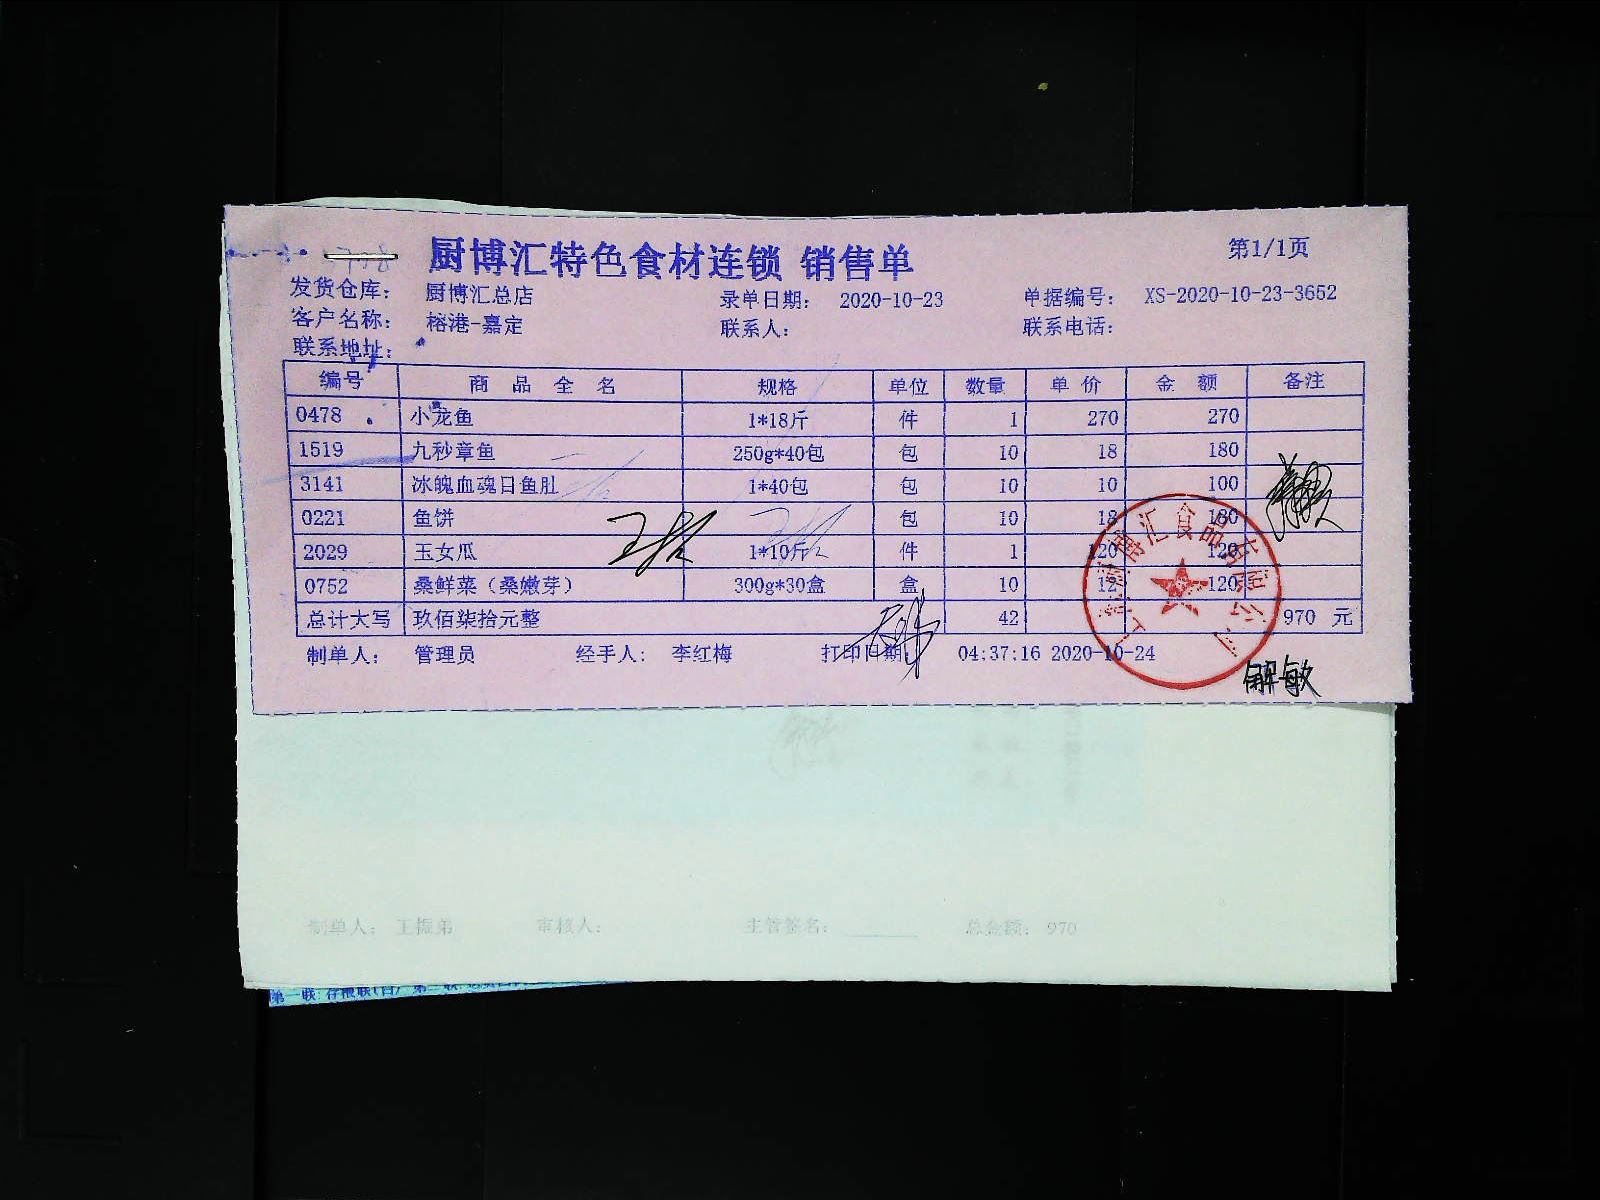 厨博汇特色食材连锁 销售单
第1/1页
发货仓库： 厨博汇总店 录单日期： 2020-10-23 单据编号： XS-2020-10-23-3652
客户名称： 榕港-嘉定 联系人： 联系电话：
联系地址：
编号 商品全名 规格 单位 数量 单价 金额 备注
0478 小龙鱼 1*18斤 件 1 270 270
1519 九秒章鱼 250g*40包 包 10 18 180
3141 冰魄血魂日鱼肚 1*40包 包 10 10 100
0221 鱼饼 包 10 18 180
2029 玉女瓜 1*10斤 件 1 120 120
0752 桑鲜菜（桑嫩芽） 300g*30盒 盒 10 12 120
总计大写 玖佰柒拾元整 42 970 元
制单人： 管理员 经手人： 李红梅 打印日期： 04:37:16 2020-10-24
解敏
制单人： 王振弟 审核人： 主管签名： 总金额： 970